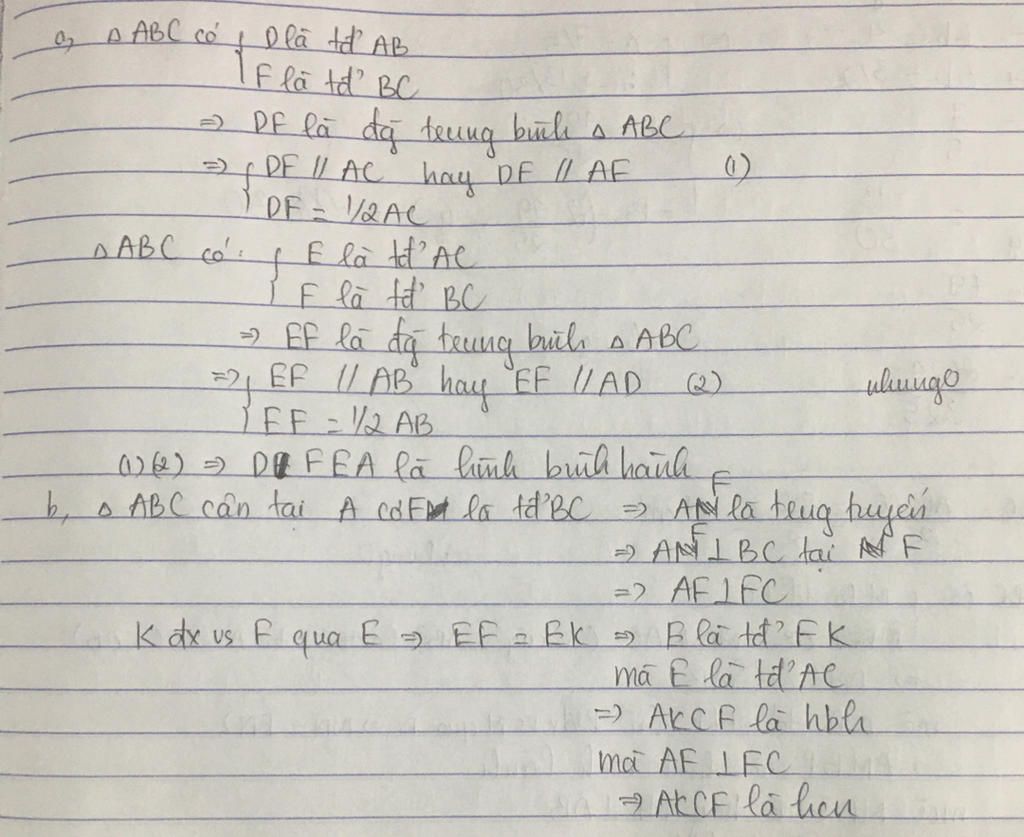 a, △ ABC có { D là tđ' AB
F là tđ' BC
=> DF là đg trung bình △ ABC
=> { DF // AC hay DF // AE (1)
DF = 1/2 AC
△ ABC có: { E là tđ' AC
F là tđ' BC
=> EF là đg trung bình △ ABC
=> { EF // AB hay EF // AD (2) nhung0
EF = 1/2 AB
(1)(2) => DFEA là hình bình hành
b, △ ABC cân tại A có F là tđ' BC => AF là trung tuyến
=> AF ⊥ BC tại F
=> AF ⊥ FC
K đx vs F qua E => EF = EK => E là tđ' FK
mà E là tđ' AC
=> AKCF là hbh
mà AF ⊥ FC
=> AKCF là hcn